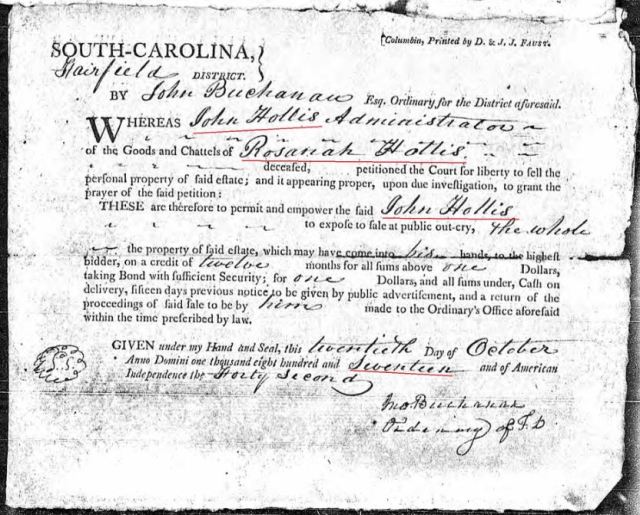 [Columbia, Printed by D. & J. J. FAUST.
SOUTH-CAROLINA,
Fairfield DISTRICT.
BY John Buchanan Esq. Ordinary for the District aforesaid.
WHEREAS John Hollis Administrator
of the Goods and Chattels of Rosanah Hollis
deceased, petitioned the Court for liberty to sell the
personal property of said estate; and it appearing proper, upon due investigation, to grant the
prayer of the said petition:
THESE are therefore to permit and empower the said John Hollis
to expose to sale at public out-cry, the whole
the property of said estate, which may have come into his hands, to the highest
bidder, on a credit of twelve months for all sums above one Dollars,
taking Bond with sufficient Security; for one Dollars, and all sums under, Cash on
delivery, fifteen days previous notice to be given by public advertisement, and a return of the
proceedings of said sale to be by him made to the Ordinary's Office aforesaid
within the time prescribed by law.
GIVEN under my Hand and Seal, this twentieth Day of October
Anno Domini one thousand eight hundred and Seventeen and of American
Independence the Forty Second
L.S.
Jno. Buchanan
Ordinary of F. D